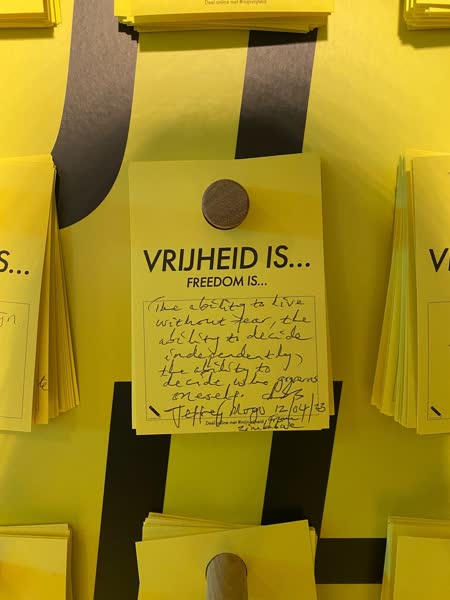 Deel online met #mijnvrijheid
S...
VRIJHEID IS...
FREEDOM IS...
The ability to live
without fear, the
ability to decide
independently,
the ability to
decide who governs
oneself.
Jeffrey Moyo 12/04/23
Deel online met #mijnvrijheid from
Zimbabwe
V